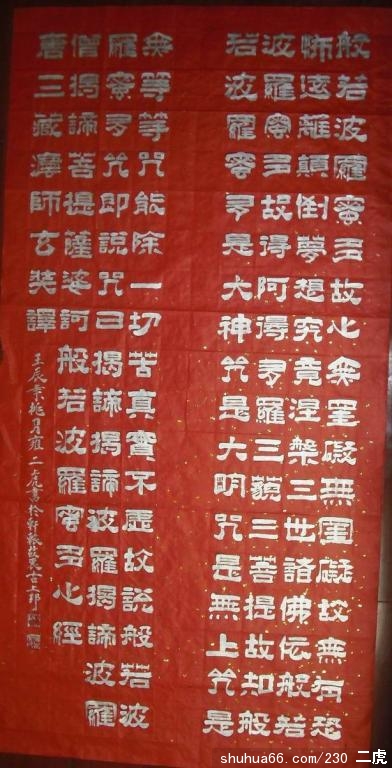 般若波羅蜜多故心無罣礙無罣礙故無有恐
怖遠離顛倒夢想究竟涅槃三世諸佛依般若
波羅蜜多故得阿耨多羅三藐三菩提故知般
若波羅蜜多是大神咒是大明咒是無上咒是
無等等咒能除一切苦真實不虛故說般若波
羅蜜多咒即說咒曰揭諦揭諦波羅揭諦波羅
僧揭諦菩提薩婆訶般若波羅蜜多心經
唐三藏法師玄奘譯
壬辰年桃月雍二虎書於軒轅故里古上邽
shuhua66.com/230 二虎